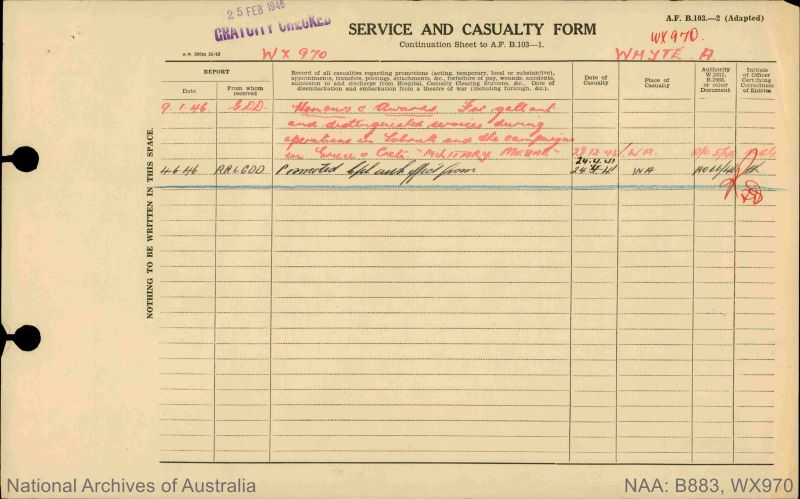 25 FEB 1946
GRATUITY CHECKED
SERVICE AND CASUALTY FORM
A.F. B.103.—2 (Adapted)
Continuation Sheet to A.F. B.103—1.
WX970.
WX 970
WHYTE. A.
REPORT
Date
From whom received
Record of all casualties regarding promotions (acting, temporary, local or substantive), appointments, transfers, postings, attachments, &c., forfeiture of pay, wounds, accidents, admission to and discharge from Hospital, Casualty Clearing Stations, &c. Date of disembarkation and embarkation from a theatre of war (including furlough, &c.).
Date of Casualty
Place of Casualty
Authority W.3011, B.2069, or other Document
Initials of Officer Certifying Correctness of Entries
NOTHING TO BE WRITTEN IN THIS SPACE.
9.1.46. GDD. Honours & Awards For gallant
and distinguished services during
operations in Tobruk and the campaigns
in Greece & Crete "MILITARY MEDAL" WA.
24.4.41
4.6.46 Promoted Cpl with effect from WA
National Archives of Australia
NAA: B883, WX970